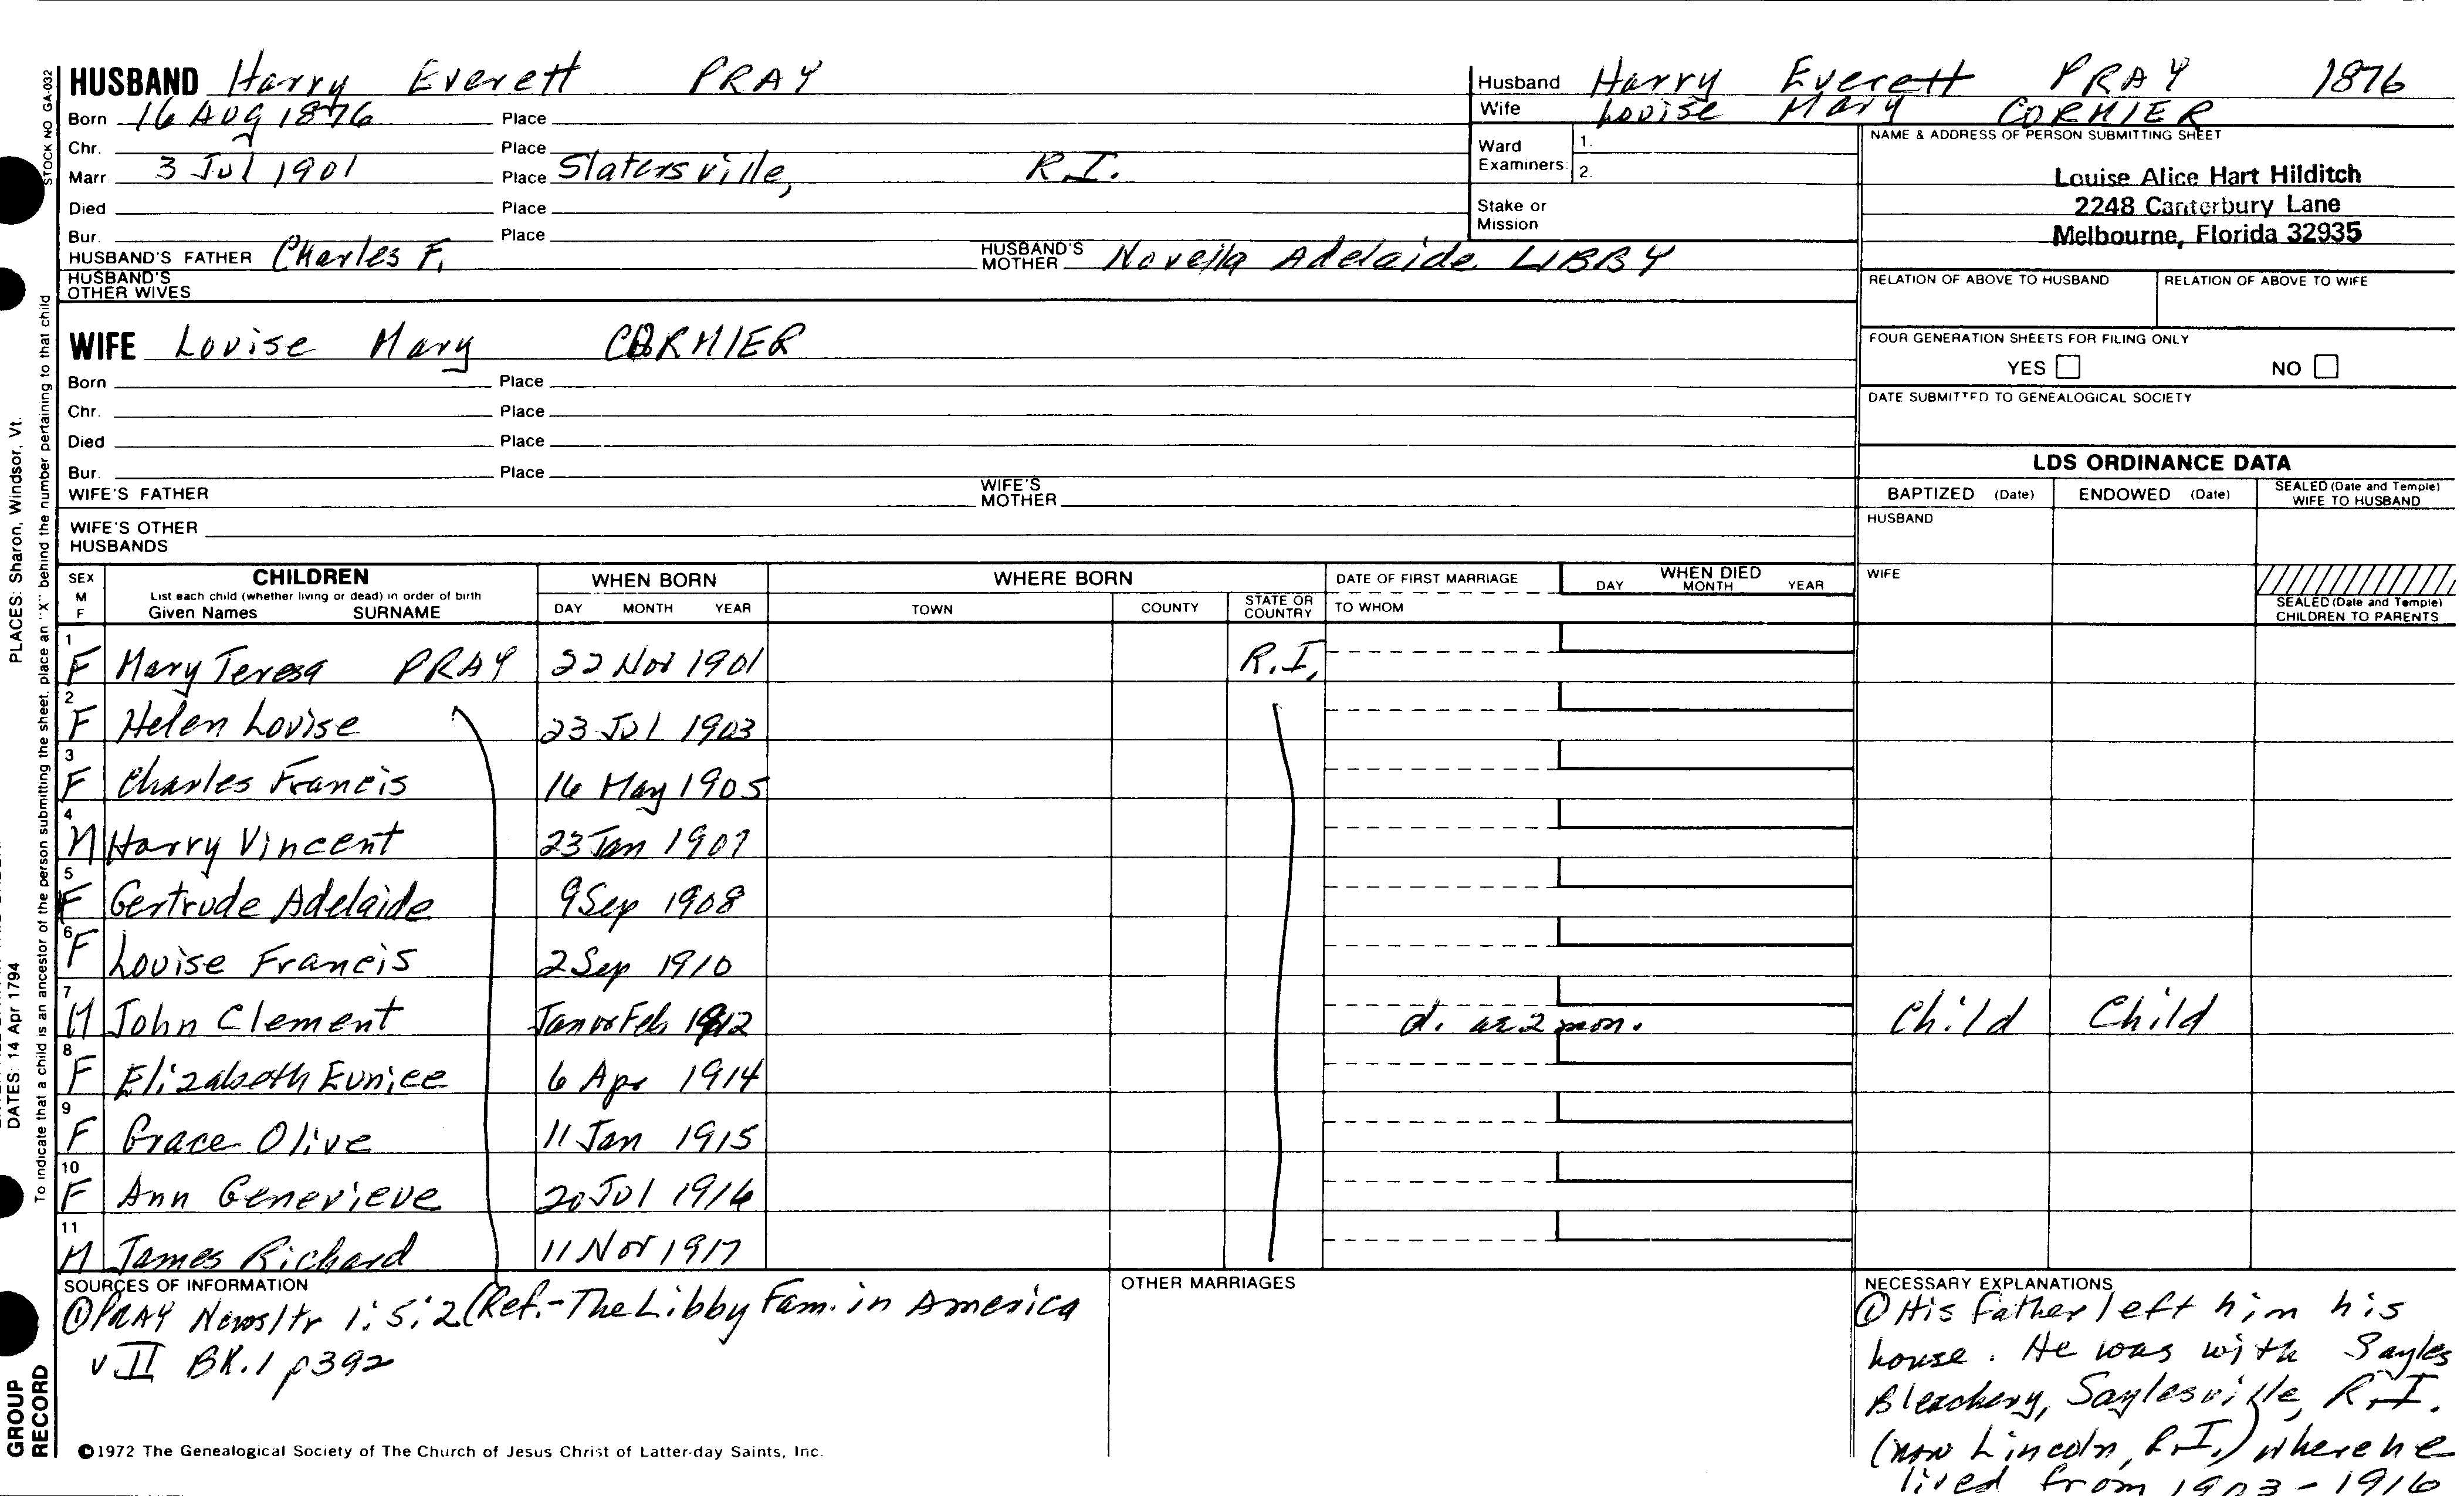 HUSBAND Harry Everett PRAY
Born 16 AUG 1876 Place
Chr. Place
Marr. 3 Jul 1901 Place Slatersville, R.I.
Died Place
Bur. Place
HUSBAND'S FATHER Charles F. HUSBAND'S MOTHER Novella Adelaide LIBBY
HUSBAND'S OTHER WIVES
WIFE Louise Mary CORMIER
Born Place
Chr. Place
Died Place
Bur. Place
WIFE'S FATHER WIFE'S MOTHER
WIFE'S OTHER HUSBANDS
Husband Harry Everett PRAY 1876
Wife Louise Mary CORMIER
Ward Examiners: 1. 2.
Stake or Mission
NAME & ADDRESS OF PERSON SUBMITTING SHEET
Louise Alice Hart Hilditch
2248 Canterbury Lane
Melbourne, Florida 32935
RELATION OF ABOVE TO HUSBAND RELATION OF ABOVE TO WIFE
FOUR GENERATION SHEETS FOR FILING ONLY
YES NO
DATE SUBMITTED TO GENEALOGICAL SOCIETY
LDS ORDINANCE DATA
BAPTIZED (Date) ENDOWED (Date) SEALED (Date and Temple) WIFE TO HUSBAND
HUSBAND
WIFE
SEALED (Date and Temple) CHILDREN TO PARENTS
SEX M F CHILDREN WHEN BORN WHERE BORN DATE OF FIRST MARRIAGE WHEN DIED
List each child (whether living or dead) in order of birth
Given Names SURNAME DAY MONTH YEAR TOWN COUNTY STATE OR COUNTRY TO WHOM DAY MONTH YEAR
1 F Mary Teresa PRAY 22 Nov 1901 R.I.
2 F Helen Louise 23 Jul 1903
3 F Charles Francis 16 May 1905
4 M Harry Vincent 23 Jan 1907
5 F Gertrude Adelaide 9 Sep 1908
6 F Louise Francis 2 Sep 1910
7 M John Clement Jan or Feb 1912 d. ae 2 mon. Child Child
8 F Elizabeth Eunice 6 Apr 1914
9 F Grace Olive 11 Jan 1915
10 F Ann Genevieve 20 Jul 1916
11 M James Richard 11 Nov 1917
SOURCES OF INFORMATION
① PRAY Newsltr 1:5:2 (Ref.-The Libby Fam. in America
v II BK.1 p392
OTHER MARRIAGES
NECESSARY EXPLANATIONS
① His father left him his
house. He was with Sayles
Bleachery, Saylesville, R.I.
(now Lincoln, R.I.) where he
lived from 1903-1916
©1972 The Genealogical Society of The Church of Jesus Christ of Latter-day Saints, Inc.
STOCK NO GA-032
To indicate that a child is an ancestor of the person submitting the sheet, place an "X" behind the number pertaining to that child
PLACES: Sharon, Windsor, Vt.
DATES: 14 Apr 1794
GROUP
RECORD